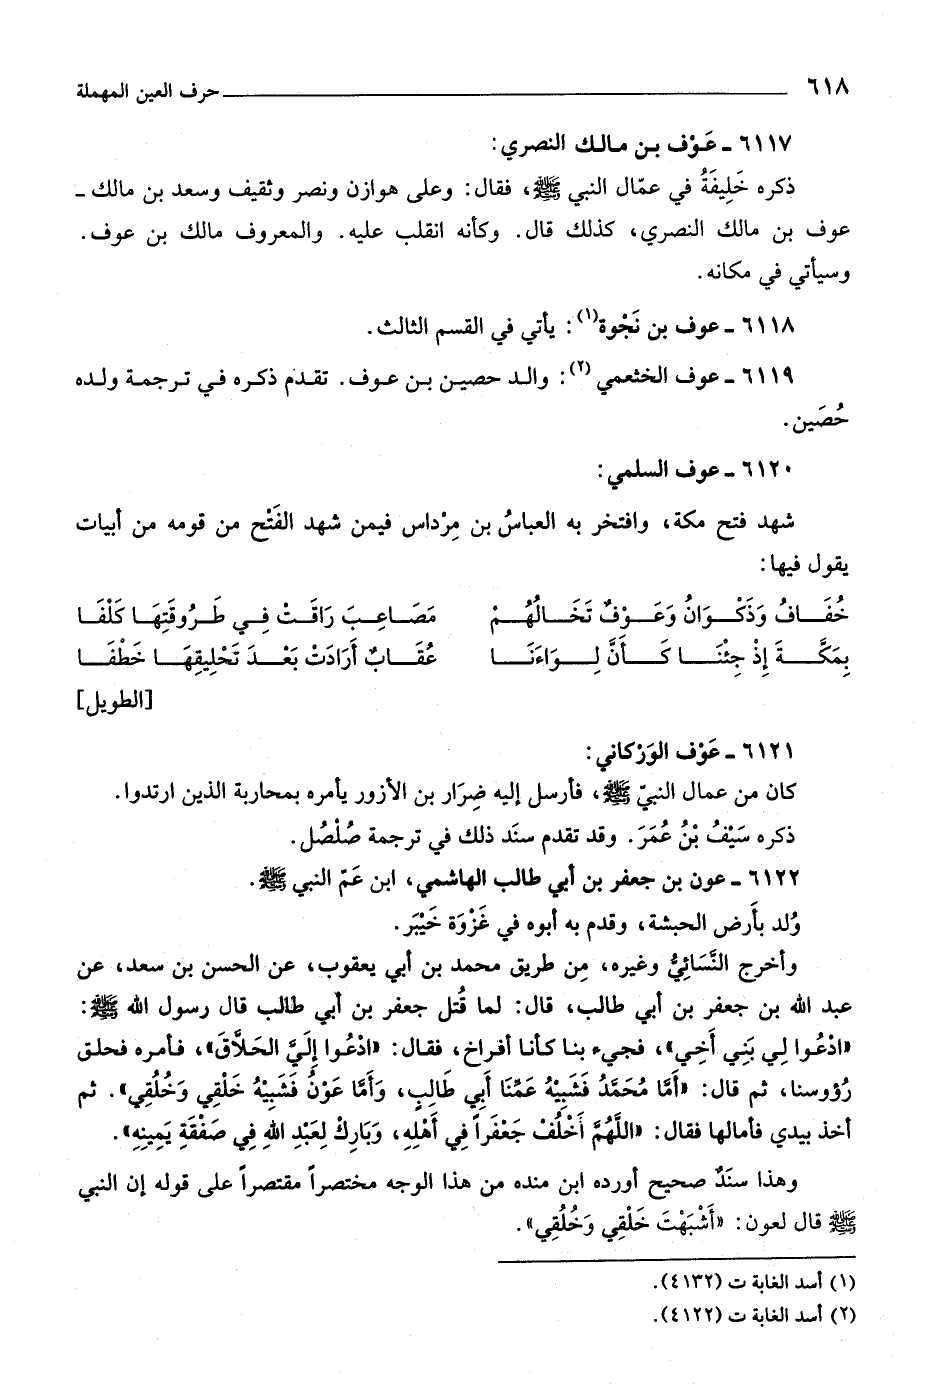 ٦١٨ حرف العين المهملة
٦١١٧ ـ عَوْف بن مالك النصري:
ذكره خَلِيفَةُ في عمّال النبي ﷺ، فقال: وعلى هوازن ونصر وثقيف وسعد بن مالك ـ
عوف بن مالك النصري، كذلك قال. وكأنه انقلب عليه. والمعروف مالك بن عوف.
وسيأتي في مكانه.
٦١١٨ ـ عوف بن نَجْوة(١): يأتي في القسم الثالث.
٦١١٩ ـ عوف الخثعمي (٢): والد حصين بن عوف. تقدم ذكره في ترجمة ولده
حُصَين.
٦١٢٠ ـ عوف السلمي:
شهد فتح مكة، وافتخر به العباسُ بن مِرْداس فيمن شهد الفَتْح من قومه من أبيات
يقول فيها:
خُفَافُ وَذَكْوَانُ وَعَوْفٌ تَخَالُهُمْ مَصَاعِبَ رَاقَتْ فِي طَرُوقَتِهَا كَلْفَا
بِمَكَّةَ إِذْ جِئْنَا كَأَنَّ لِوَاءَنَا عُقَابٌ أَرَادَتْ بَعْدَ تَحْلِيقِهَا خَطْفَا
[الطويل]
٦١٢١ ـ عَوْف الوَرْكاني:
كان من عمال النبيّ ﷺ، فأرسل إليه ضِرَار بن الأزور يأمره بمحاربة الذين ارتدوا.
ذكره سَيْفُ بْنُ عُمَرَ. وقد تقدم سنَد ذلك في ترجمة صُلْصُل.
٦١٢٢ ـ عون بن جعفر بن أبي طالب الهاشمي، ابن عَمّ النبي ﷺ.
وُلد بأَرض الحبشة، وقدم به أبوه في غَزْوَة خَيْبَر.
وأخرج النَّسَائِيُّ وغيره، مِن طريق محمد بن أبي يعقوب، عن الحسن بن سعد، عن
عبد الله بن جعفر بن أبي طالب، قال: لما قُتل جعفر بن أبي طالب قال رسول الله ﷺ:
«ادْعُوا لِي بَنِي أَخِي»، فجيء بنا كأنا أفراخ، فقال: «ادْعُوا إِلَيَّ الحَلَّاقَ»، فأمره فحلق
رُؤوسنا، ثم قال: «أَمَّا مُحَمَّدُ فَشَبِيْهُ عَمِّنَا أَبِي طَالِبٍ، وَأَمَّا عَوْنُ فَشَبِيْهُ خَلْقِي وَخُلُقِي». ثم
أخذ بيدي فأمالها فقال: «اللَّهُمَّ أَخْلُفْ جَعْفَراً فِي أَهْلِهِ، وَبَارِكْ لِعَبْدِ اللهِ فِي صَفْقَةِ يَمِينِهِ».
وهذا سنَدٌ صحيح أورده ابن منده من هذا الوجه مختصراً مقتصراً على قوله إن النبي
ﷺ قال لعون: «أَشْبَهْتَ خَلْقِي وَخُلُقِي».
(١) أسد الغابة ت (٤١٣٢).
(٢) أسد الغابة ت (٤١٢٢).